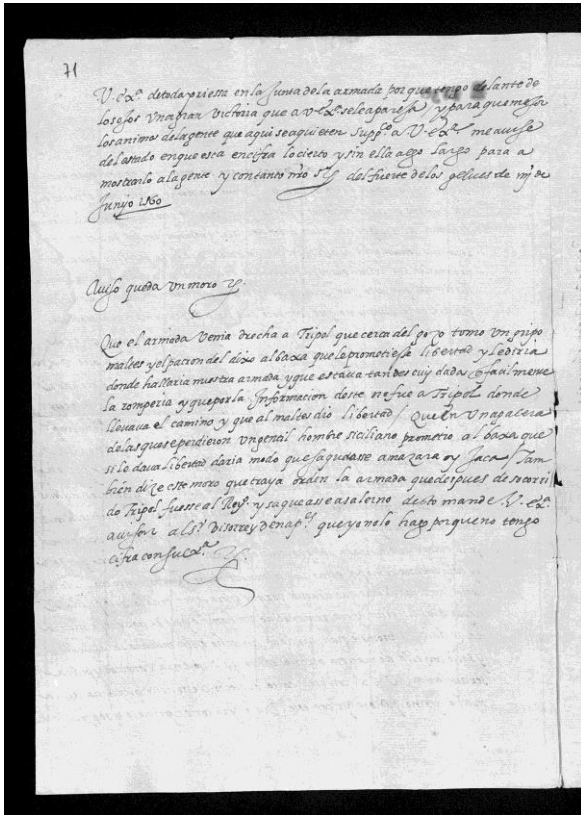 71
V. Exª. de toda priessa en la Junta de la armada porque tengo delante de
los ojos Una gran victoria que a V. Exª. se le apareja y para que mejor
los animos de la gente que aqui se aquieten Suppᶜᵒ a V. Exª. me auise
del estado en que esta en cifra lo cierto y sin ella algo largo para a
mostrarlo a la gente y con tanto nr̄o Sʳ del fuerte de los gelues de iij de
Junyo 1560
Auiso que da Vn moro
Que el armada Venia drecha a Tripol que cerca del gozo tomo Un gripo
maltes y el patron del dixo al baxa que le prometiesse libertad y le diria
donde hallaria nuestra armada, y que estaua tan descuydada q̃ facilmente
la romperia y que por la Informacion deste ne fue a Tripol donde
lleuaua el camino, y que al maltes dio libertad / Que en Una galera
de las que se perdieron Un gentil hombre siciliano prometio al baxa que
si le daua libertad daria modo que saqueasse amazara oy Jaca / Tam
bien dize este moro que traya orden la armada que despues de socorri
do Tripol fuesse al Reyᵒ. y saqueasse a salerno desto mande V. Exª.
auisar al sʳ Visorrey de napᵉˢ que yo no lo hago porque no tengo
cifra con su exª.